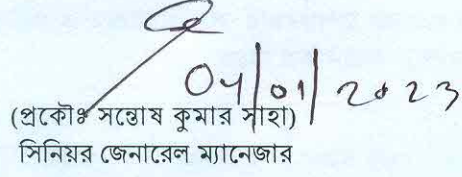 04/01/2023
(প্রকৌঃ সন্তোষ কুমার সাহা)
সিনিয়র জেনারেল ম্যানেজার